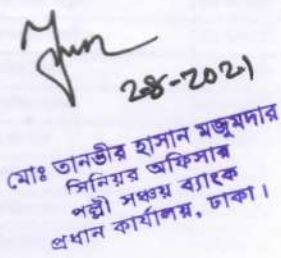 28-2021
মোঃ তানভীর হাসান মজুমদার
সিনিয়র অফিসার
পল্লী সঞ্চয় ব্যাংক
প্রধান কার্যালয়, ঢাকা।